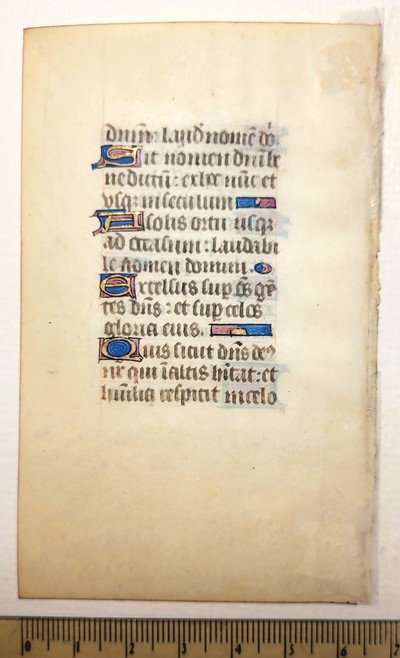 dnm̄: laud nomē dn̄i.
Sit nomen dn̄i be
nedictū: ex hoc nūc et
vsq; in seculum
A solis ortu usq;
ad occasum: laudabi
le nomen domini.
Excelsus sup om̄s gē
tes dn̄s: et sup celos
gloria eius.
Quis sicut dn̄s de⁹
nr̄ qui ī altis hītat: et
humilia respicit in celo
0 1 2 3 4 5 6 7